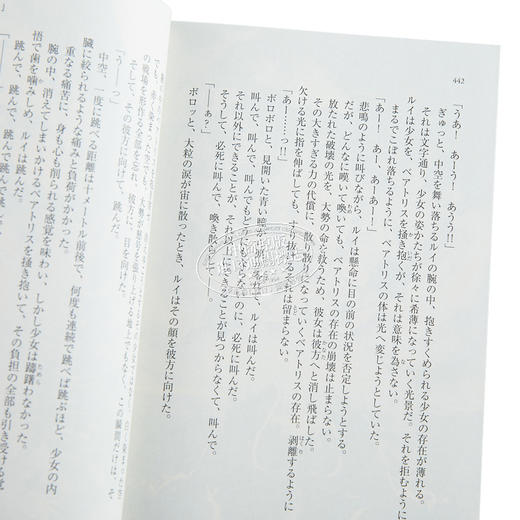 442
「うあ！　あーう！　あうう!!」
ぎゅっと、中空を舞い落ちるルイの腕の中、抱きすくめられる少女の存在が薄れる。
それは文字通り、少女の姿かたちが徐々に希薄になっていく光景だ。それを拒むように
ルイは少女を、ベアトリスを掻き抱くが、それは意味を為さない。
まるでこぼれ落ちるように、ベアトリスの体は光へ変じようとしていた。
「あー！　あー、あーあー！」
悲鳴のように叫びながら、ルイは懸命に目の前の状況を否定しようとする。
だが、どんなに嘆いて喚いても、ベアトリスの存在の崩壊は止まらない。
放たれた破壊の光を、大勢の命を救うため、彼女は彼方へと消し飛ばした。
その大きすぎる力の代償に、散り散りになっていくベアトリスの存在。剥離するように
欠ける光に指を伸ばしても、すり抜けるそれは留まらない。
「あー……っ!!」
ボロボロと、見開いた青い瞳が
、ルイは叫んだ。
叫んで、叫んで、叫んでもどうにもならないのに、必死に叫んだ。
それ以外にできることが、それ以上にできることが見つからなくて、叫んで。
そうして、必死に叫んで、喚き散らして――。
「――ぁぅ？」
ボロッと、大粒の涙が宙に散ったとき、ルイはその顔を彼方に向けた。
そして、その彼方に向けて、跳んだ。
「うーっ」
中空、一度に跳べる距離は十メートル前後で、何度も連続で跳べば跳ぶほど、少女の内
臓に絞られるような痛みと負荷がかかった。
重なる痛苦に、身も心も削られる感覚を味わい、しかし少女は躊躇わなかった。
腕の中、消えてしまいかけるベアトリスを掻き抱いて、その負担の全部も引き受ける覚
悟で歯を噛みしめ、ルイは跳んだ。
跳んで、跳んで、跳んで跳んで跳んで